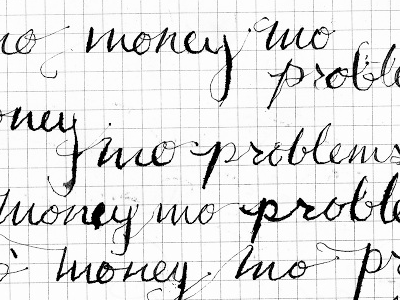 mo money mo
proble
oney mo problems
money mo proble
o money mo pr